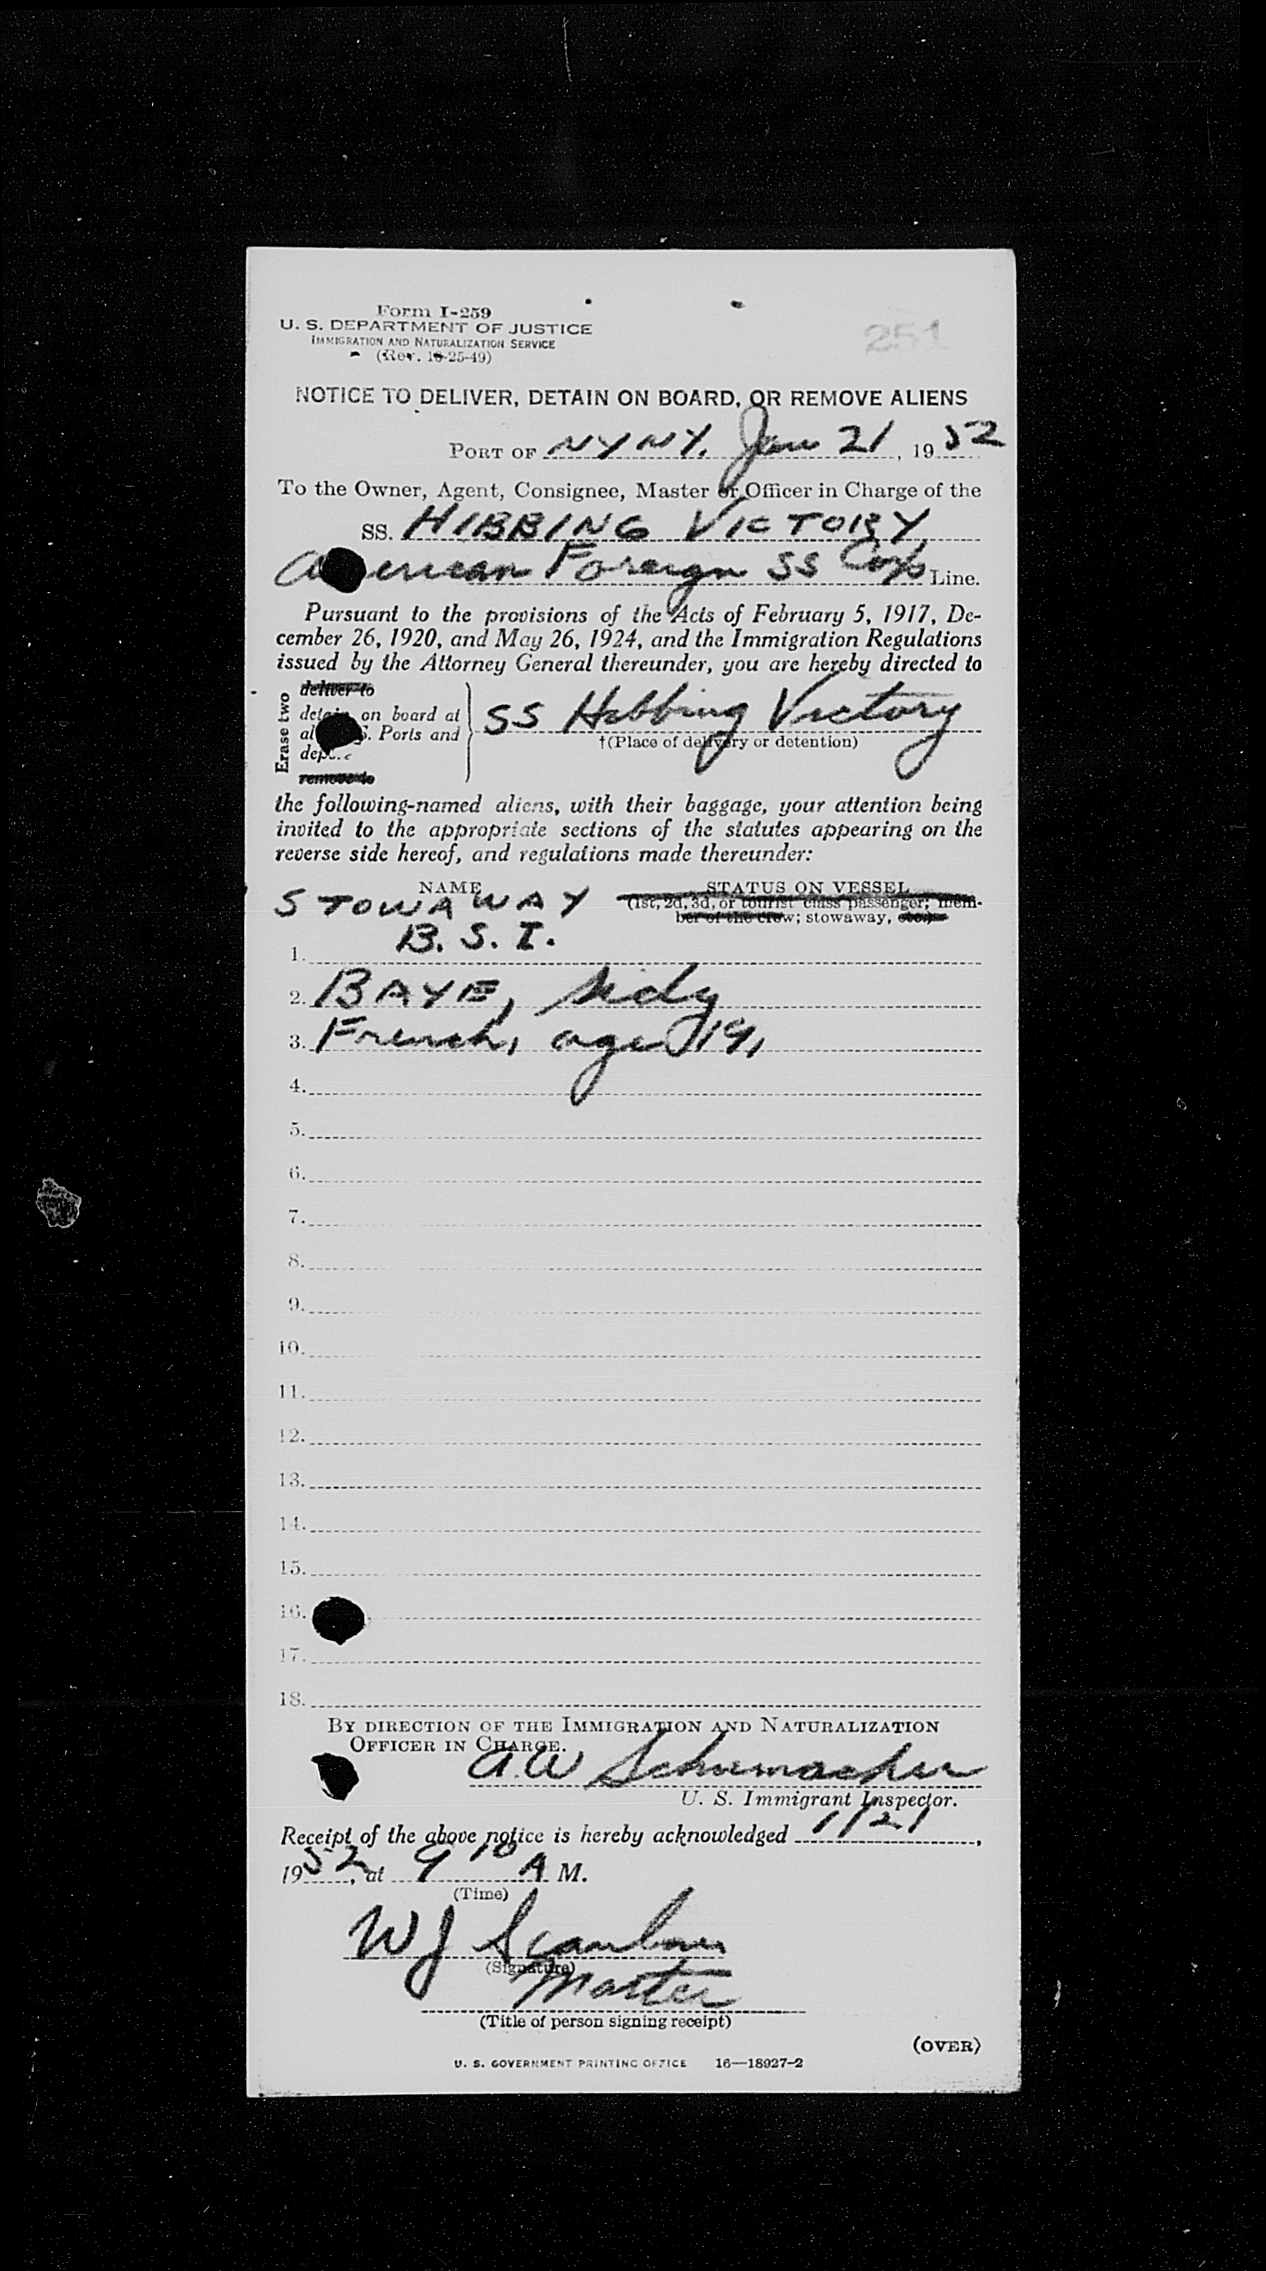 Form I-259
U. S. DEPARTMENT OF JUSTICE
IMMIGRATION AND NATURALIZATION SERVICE
(Rev. 10-25-49)
251
NOTICE TO DELIVER, DETAIN ON BOARD, OR REMOVE ALIENS
PORT OF NY NY. Jan 21, 1952
To the Owner, Agent, Consignee, Master or Officer in Charge of the
SS. HIBBING VICTORY
American Foreign SS Corp Line.
Pursuant to the provisions of the Acts of February 5, 1917, De-
cember 26, 1920, and May 26, 1924, and the Immigration Regulations
issued by the Attorney General thereunder, you are hereby directed to
Erase two
deliver to
detain on board at
al S. Ports and
remove to
SS Hibbing Victory
†(Place of delivery or detention)
the following-named aliens, with their baggage, your attention being
invited to the appropriate sections of the statutes appearing on the
reverse side hereof, and regulations made thereunder:
NAME STATUS ON VESSEL
STOWAWAY (1st, 2d, 3d, or tourist class passenger; mem-
ber of the crew; stowaway, etc.)
1. B. S. I.
2. BAYE, Sidy
3. French, age 19,
4.
5.
6.
7.
8.
9.
10.
11.
12.
13.
14.
15.
16.
17.
18.
BY DIRECTION OF THE IMMIGRATION AND NATURALIZATION
OFFICER IN CHARGE.
A.W Schumacher
U. S. Immigrant Inspector.
Receipt of the above notice is hereby acknowledged 1/21,
1952, at 9 10 A M.
(Time)
W J
(Signature)
Master
(Title of person signing receipt)
(OVER)
U. S. GOVERNMENT PRINTING OFFICE 16—18927-2